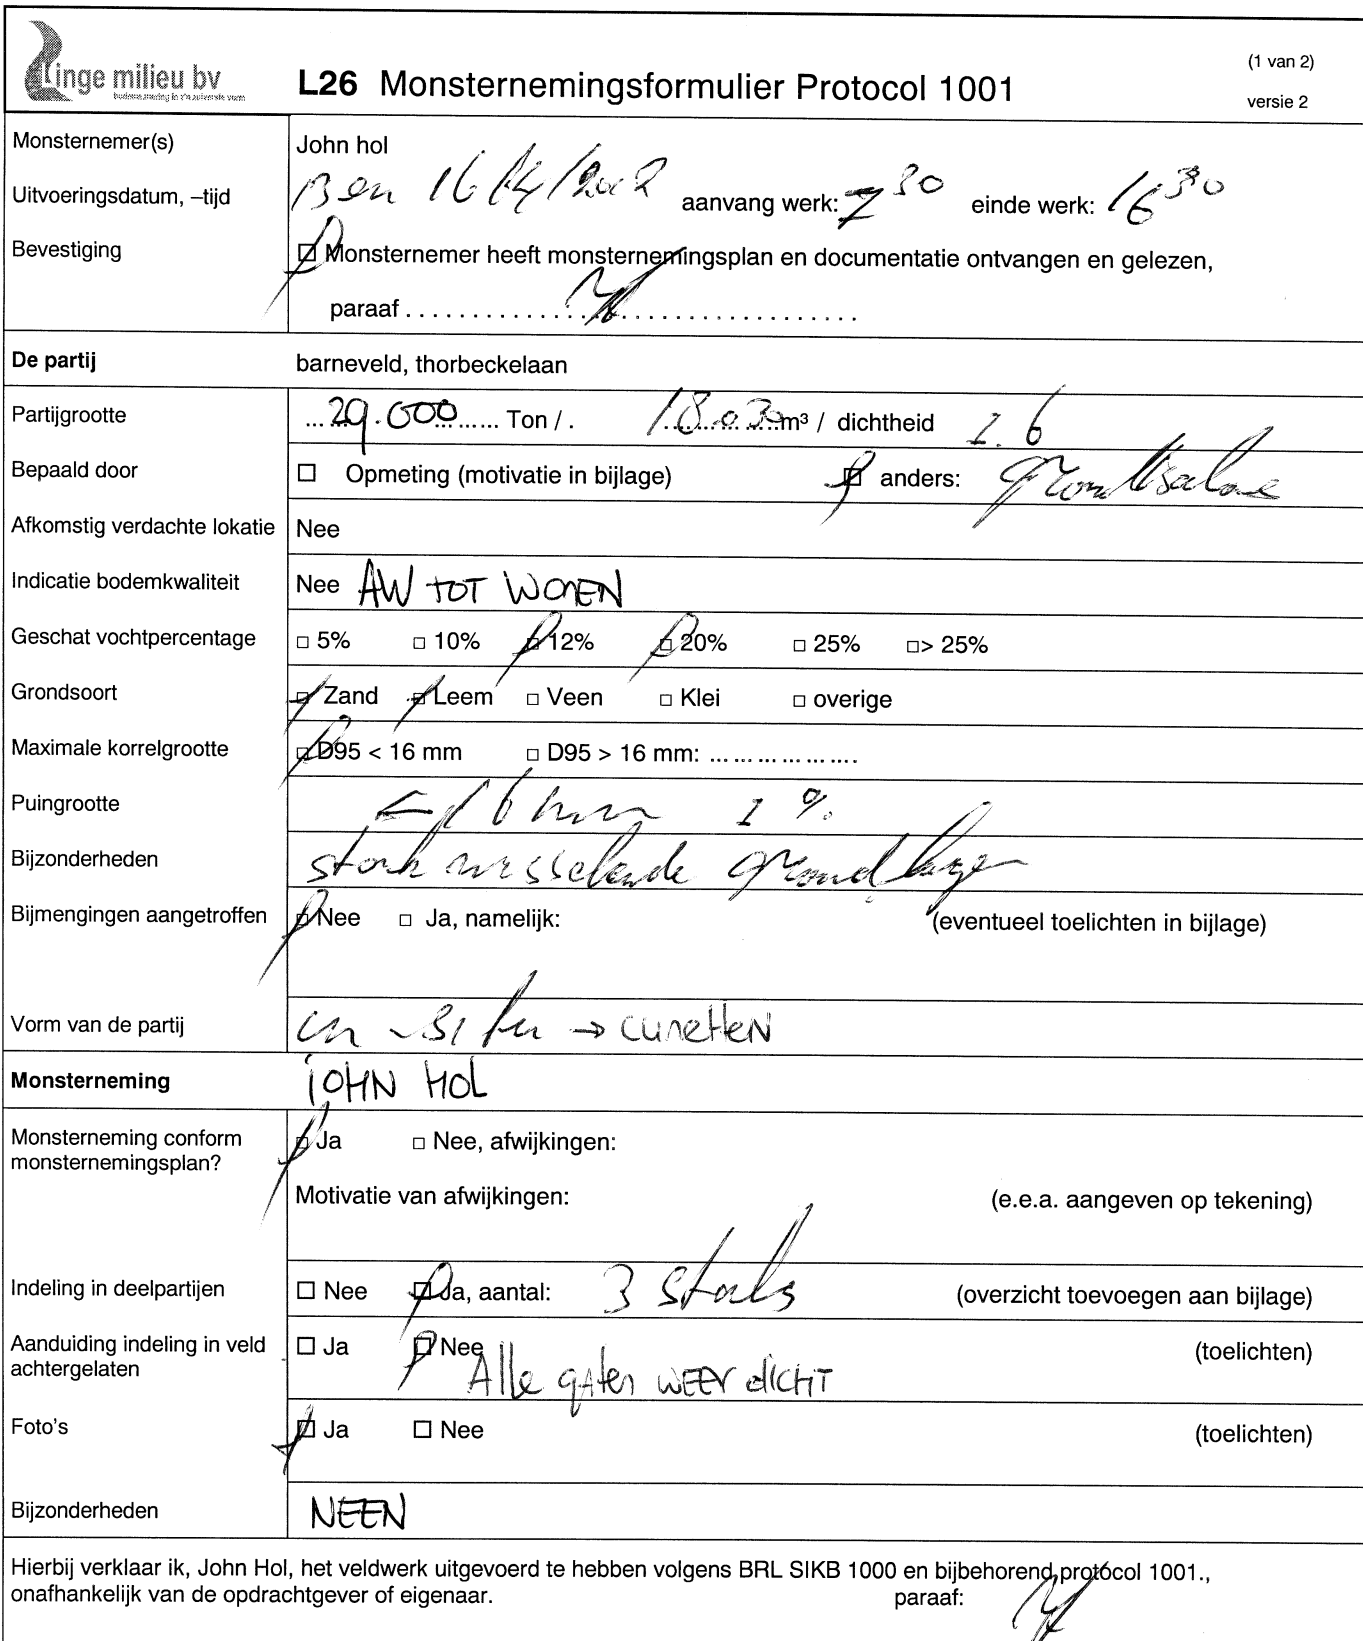 Linge milieu bv
L26 Monsternemingsformulier Protocol 1001
(1 van 2)
versie 2
Monsternemer(s) John hol
Uitvoeringsdatum, –tijd 16 aanvang werk: 7 30 einde werk: 16 30
Bevestiging Monsternemer heeft monsternemingsplan en documentatie ontvangen en gelezen,
paraaf
De partij barneveld, thorbeckelaan
Partijgrootte 29.000 Ton / . 18.030 m³ / dichtheid 1.6
Bepaald door Opmeting (motivatie in bijlage) anders:
Afkomstig verdachte lokatie Nee
Indicatie bodemkwaliteit Nee AW TOT WONEN
Geschat vochtpercentage 5% 10% 12% 20% 25% > 25%
Grondsoort Zand Leem Veen Klei overige
Maximale korrelgrootte D95 < 16 mm D95 > 16 mm: ... ... ... ... ....
Puingrootte < 16 mm 1 %
Bijzonderheden sterk wisselende grondlagen
Bijmengingen aangetroffen Nee Ja, namelijk: (eventueel toelichten in bijlage)
Vorm van de partij in-situ → CUNETTEN
Monsterneming JOHN HOL
Monsterneming conform Ja Nee, afwijkingen:
monsternemingsplan?
Motivatie van afwijkingen: (e.e.a. aangeven op tekening)
Indeling in deelpartijen Nee Ja, aantal: 3 stuks (overzicht toevoegen aan bijlage)
Aanduiding indeling in veld Ja Nee (toelichten)
achtergelaten Alle gaten WEER dICHT
Foto's Ja Nee (toelichten)
Bijzonderheden NEEN
Hierbij verklaar ik, John Hol, het veldwerk uitgevoerd te hebben volgens BRL SIKB 1000 en bijbehorend protocol 1001.,
onafhankelijk van de opdrachtgever of eigenaar. paraaf: